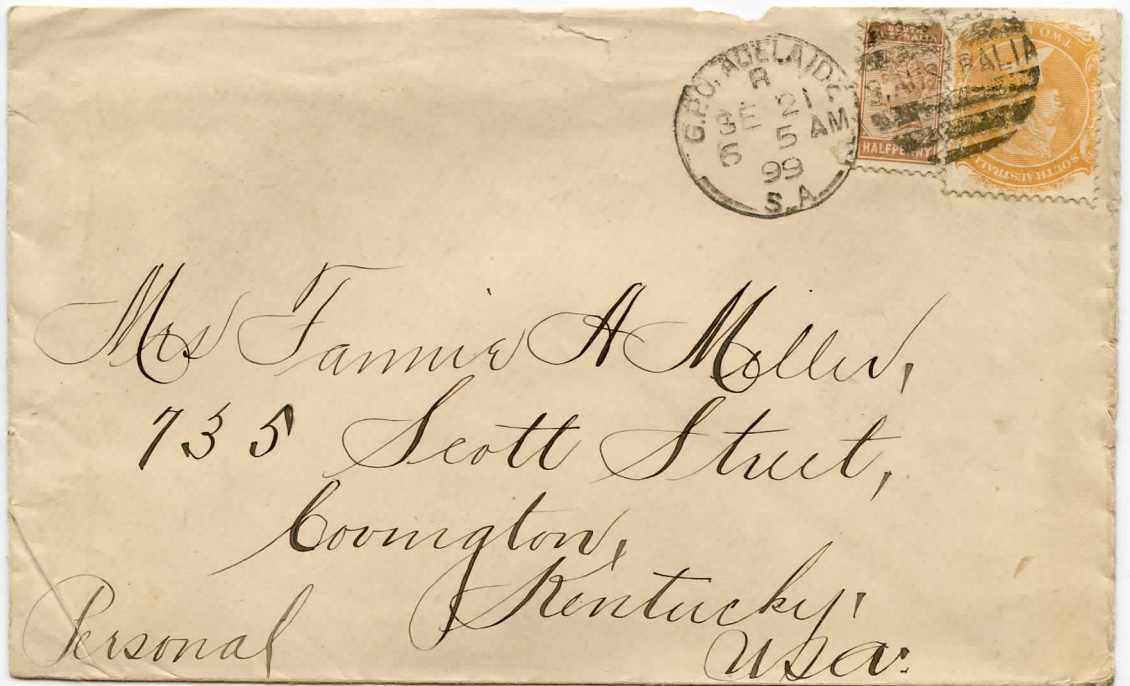 G.P.O. ADELAIDE
R
SE 21
5 AM
6 99
S.A
HALFPENNY
TWO
SOUTH AUSTRALIA
Mrs Fannie A Miller,
735 Scott Street,
Covington,
Kentucky,
USA.
Personal